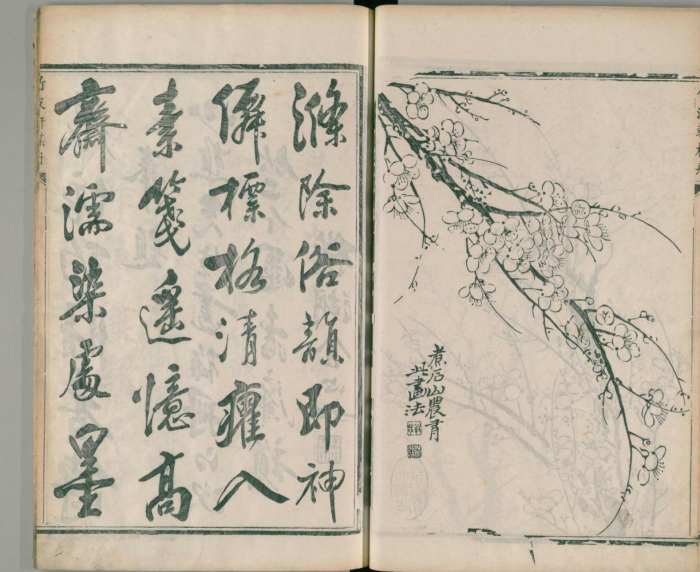 煮石山農有
此畫法
滌除俗韻即神
僊標格清癯入
素箋遙憶高
齋濡染處墨